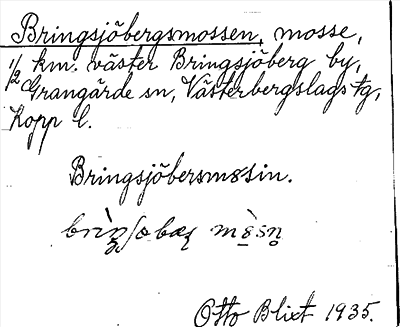 Bringsjöbergsmossen, mosse,
1/2 km. väster Bringsjöberg by,
Grangärde sn, Västerbergslags tg,
Kopp l.
Bringsjöbersmosin.
Otto Blixt 1935.